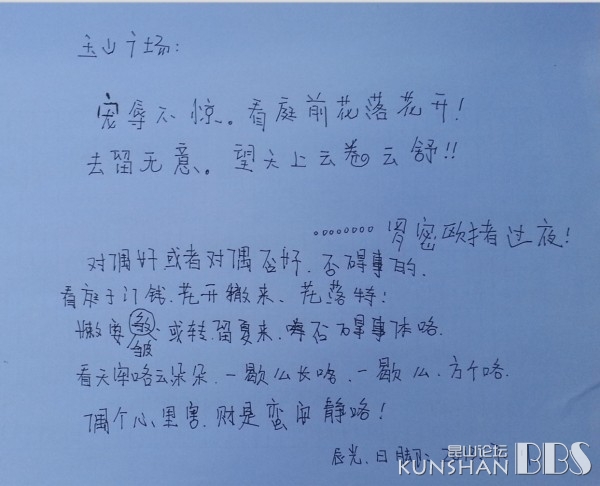 玉山广场:
宠辱不惊。看庭前花落花开!
去留无意。望天上云卷云舒!!
········胃密欧扌者过夜!
对偶好或者对偶否好、否碍事的、
看庭于门钱、花开撇来、花落特:
嫩要 或转、留夏来、嗨否碍事体咯、
皱
看天窜咯云朵朵、一歇么长咯、一歇么、方个咯、
偶个心里害、则是蛮安静咯!
辰光、日脚:
昆山论坛
KUNSHAN BBS